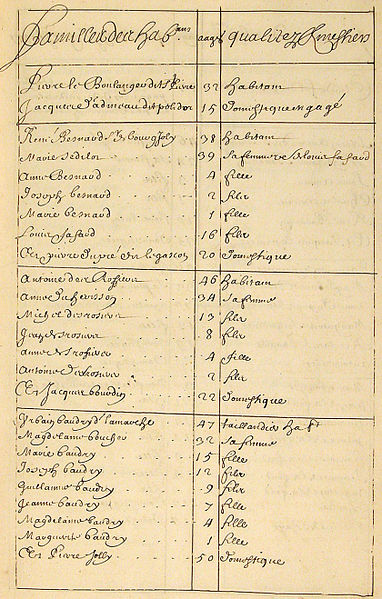 familles des hab.ans aages qualitez & mestiers
Pierre le Boulanger dit St Pierre 32 habitant
Jacques Padineau dit polidor 15 Domestique engagé
René Besnard Sr de bourgjoly 38 habitant
Marie Sedilot 39 sa femme ve de louis fafard
Anne Besnard 4 fille
Joseph besnard 2 filz
Marie besnard 1 fille
Louis fafard 16 filz
Et pierre Dupré dit le gascon 20 Domestique
Antoine des Rosiers 46 habitant
Anne Du herisson 34 sa femme
Michel des rosiers 13 filz
Jean des rosiers 8 filz
anne des rosiers 4 fille
Antoine des rosiers 2 filz
Et Jacques bourdin 22 Domestique
Urbain baudry dt lamarche 47 taillandier hat
Magdelaine boucher 32 sa femme
Marie baudry 15 fille
Joseph baudry 12 filz
Guillaume baudry 9 filz
Jeanne baudry 7 fille
Magdelaine baudry 4 fille
Marguerite baudry 1 fille
Et Pierre Jolly 50 Domestique